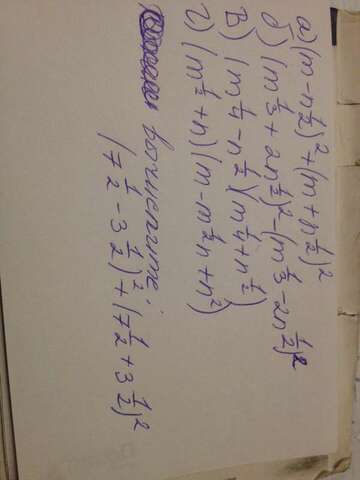 а) (m - n^{1/2})^2 + (m + n^{1/2})^2
б) (m^{1/3} + 2n^{1/2})^2 - (m^{1/3} - 2n^{1/2})^2
в) (m^{1/4} - n^{1/2})(m^{1/4} + n^{1/2})
г) (m^{1/2} + n)(m - m^{1/2}n + n^2)
вычислите:
(7^{1/2} - 3^{1/2})^2 + (7^{1/2} + 3^{1/2})^2